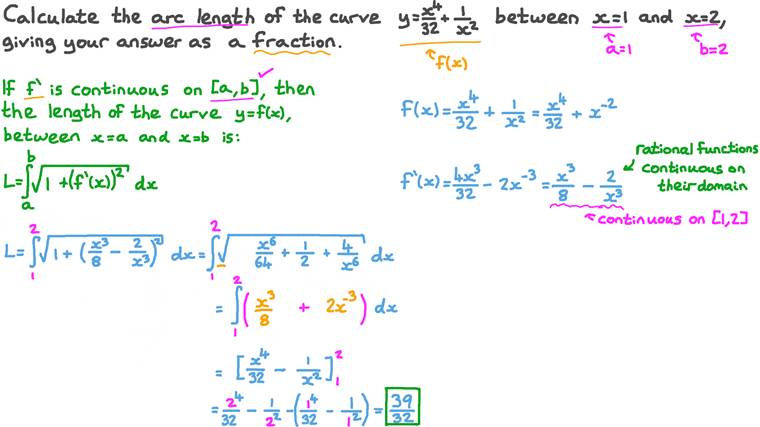 Calculate the arc length of the curve y = x⁴/32 + 1/x² between x=1 and x=2,
giving your answer as a fraction.
f(x)
a=1
b=2
If f' is continuous on [a,b], then
the length of the curve y=f(x),
between x=a and x=b is:
L = ∫ₐᵇ √(1 + (f'(x))²) dx
f(x) = x⁴/32 + 1/x² = x⁴/32 + x⁻²
f'(x) = 4x³/32 − 2x⁻³ = x³/8 − 2/x³
rational functions
continuous on
their domain
continuous on [1,2]
L = ∫₁² √(1 + (x³/8 − 2/x³)²) dx = ∫₁² √(x⁶/64 + 1/2 + 4/x⁶) dx
= ∫₁² (x³/8 + 2x⁻³) dx
= [x⁴/32 − 1/x²]₁²
= 2⁴/32 − 1/2² − (1⁴/32 − 1/1²) = 39/32